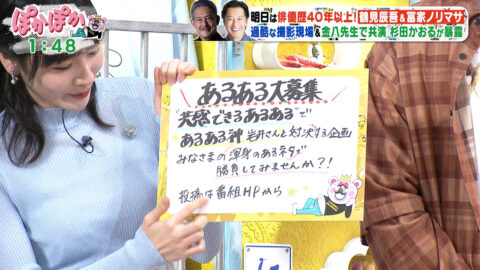 ぽかぽか
1:48
明日は俳優歴40年以上!鶴見辰吾&冨家ノリマサ
過酷な撮影現場&金八先生で共演 杉田かおるが暴露
あるある大募集
"共感できるあるある"で
あるある神 岩井さんと対決する企画
みなさまの渾身のあるネタで
勝負してみませんか?!
投稿は番組HPから